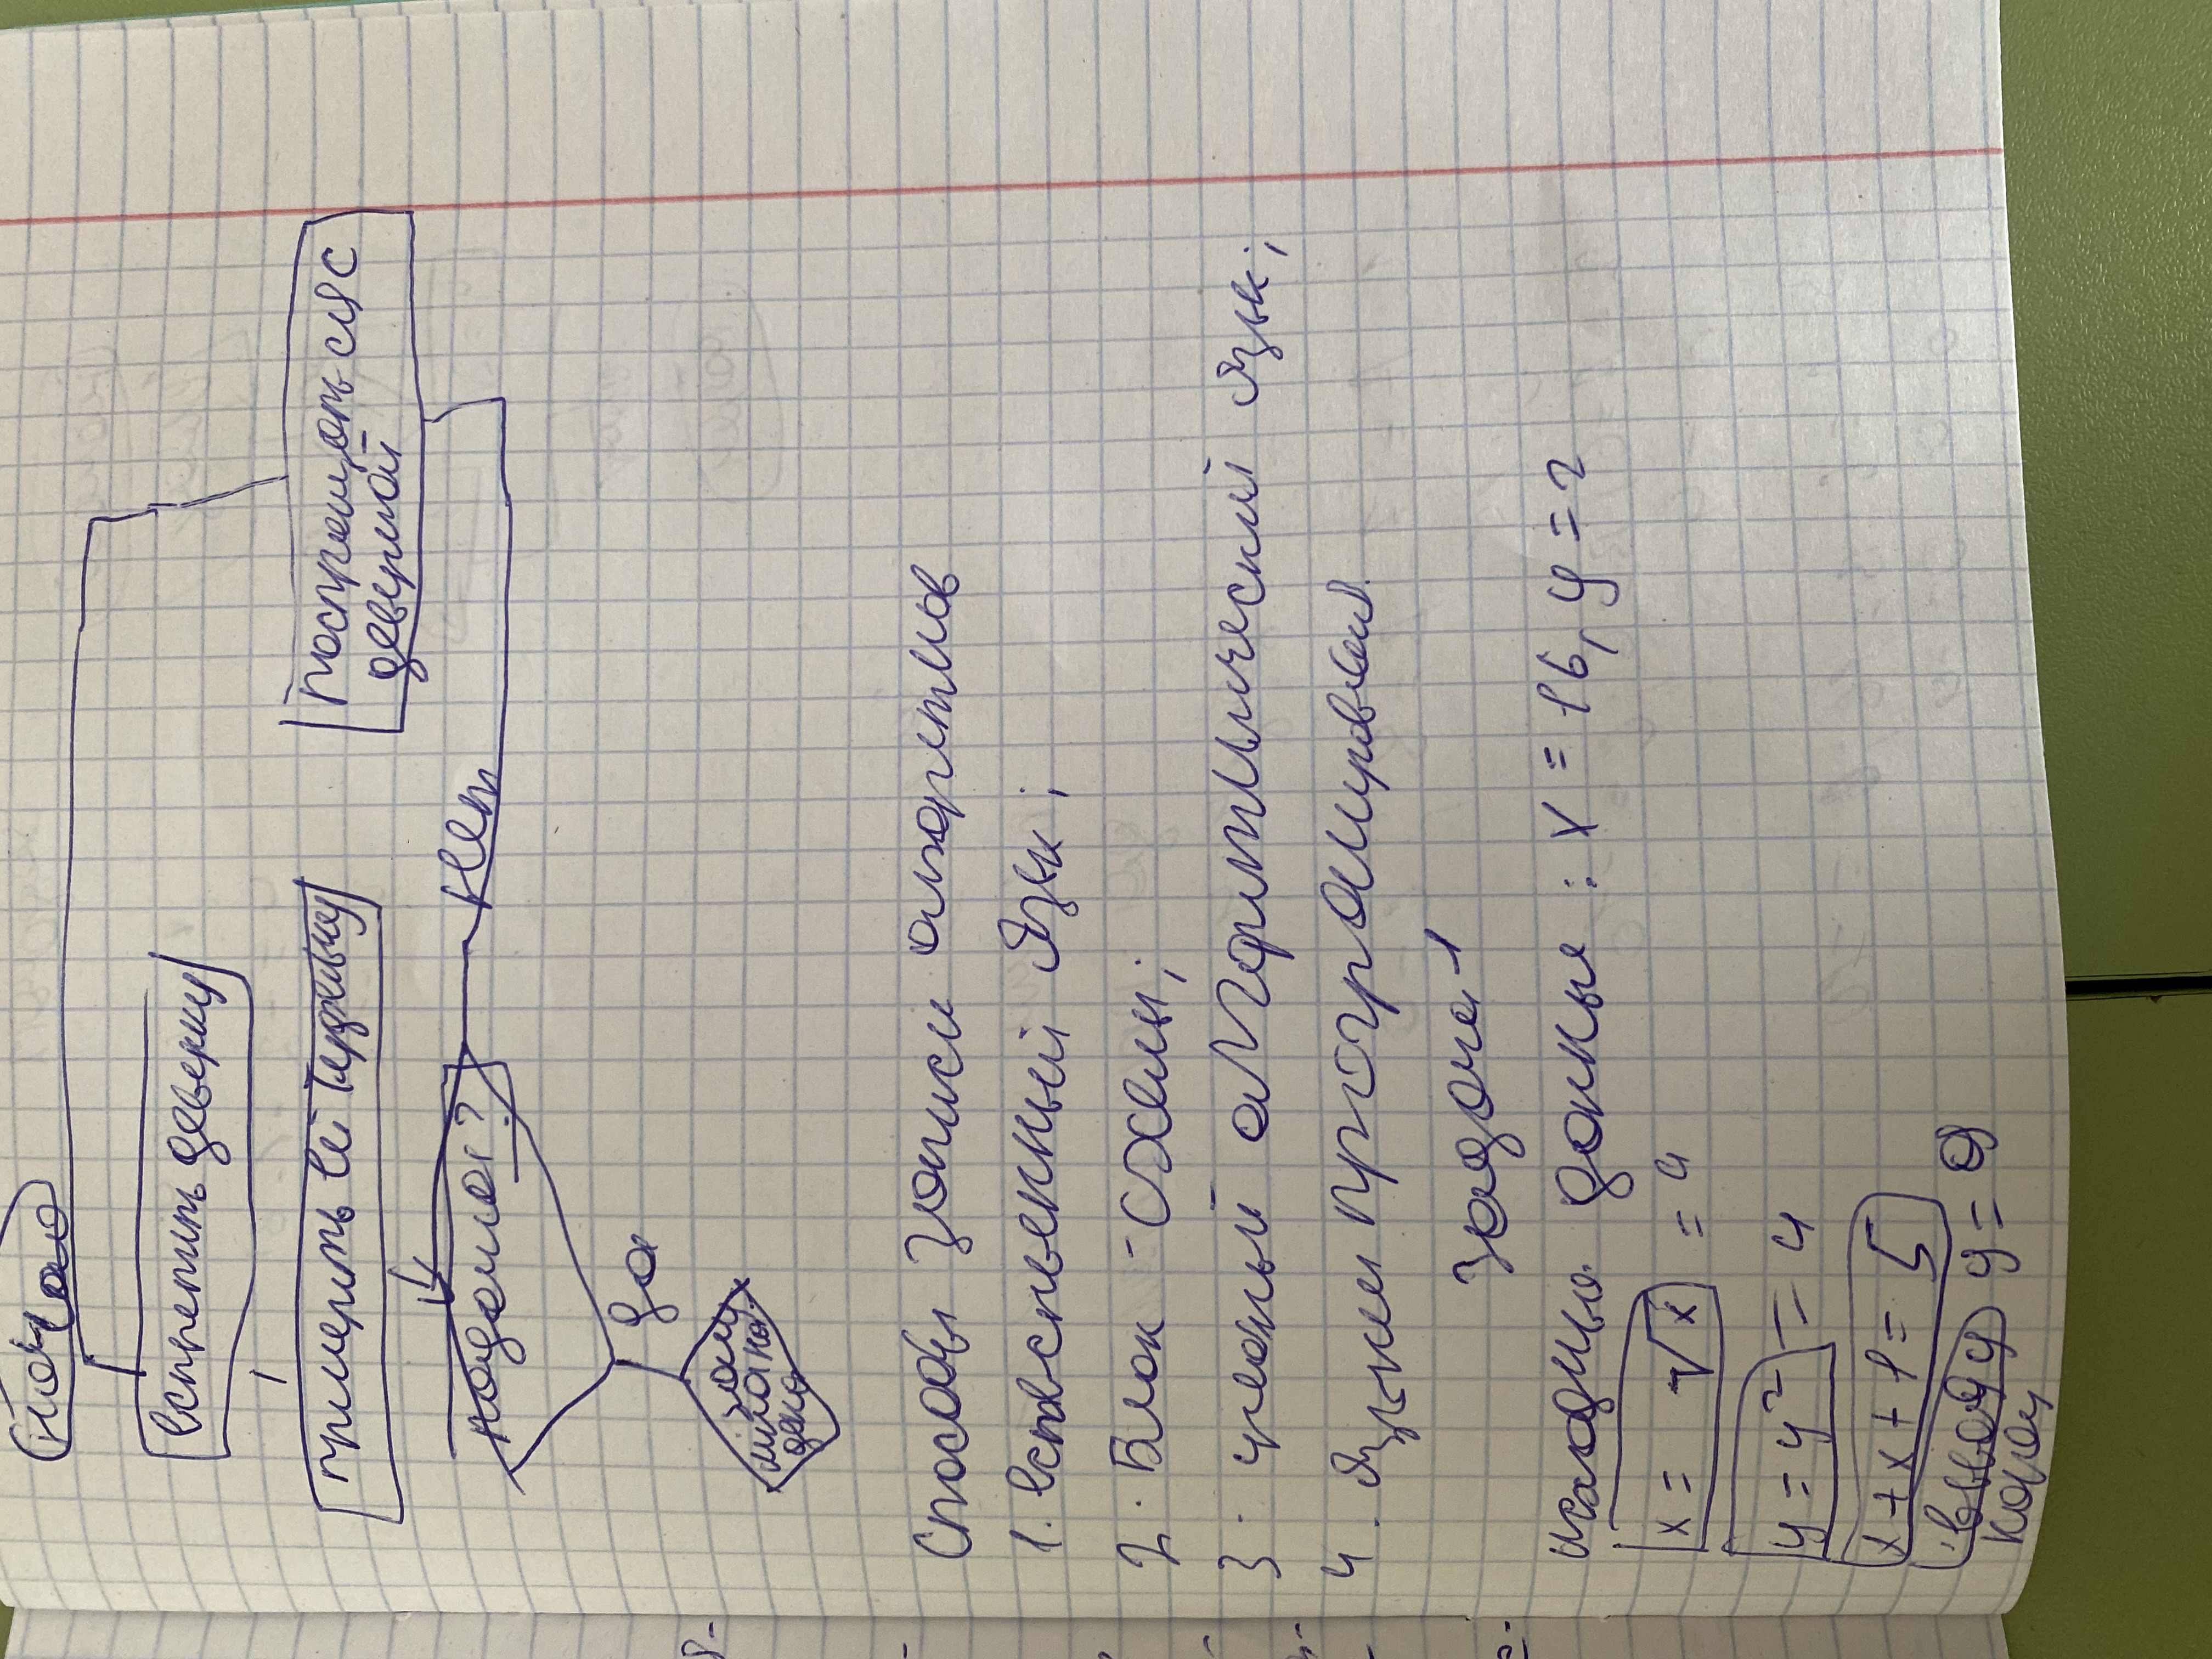 начало
встретить девушку
примерить ей туфельку
распрощаться с
девушкой
подошла?
нет
да
Способы записи алгоритмов
1. естественный язык;
2. Блок - схемы;
3. учебный алгоритмический язык;
4. языки программирования.
Задача 1
исходные данные : x = 16, y = 2
x = √x = 4
y = y² = 4
x + x + 1 = 5
вывод y y =
конец